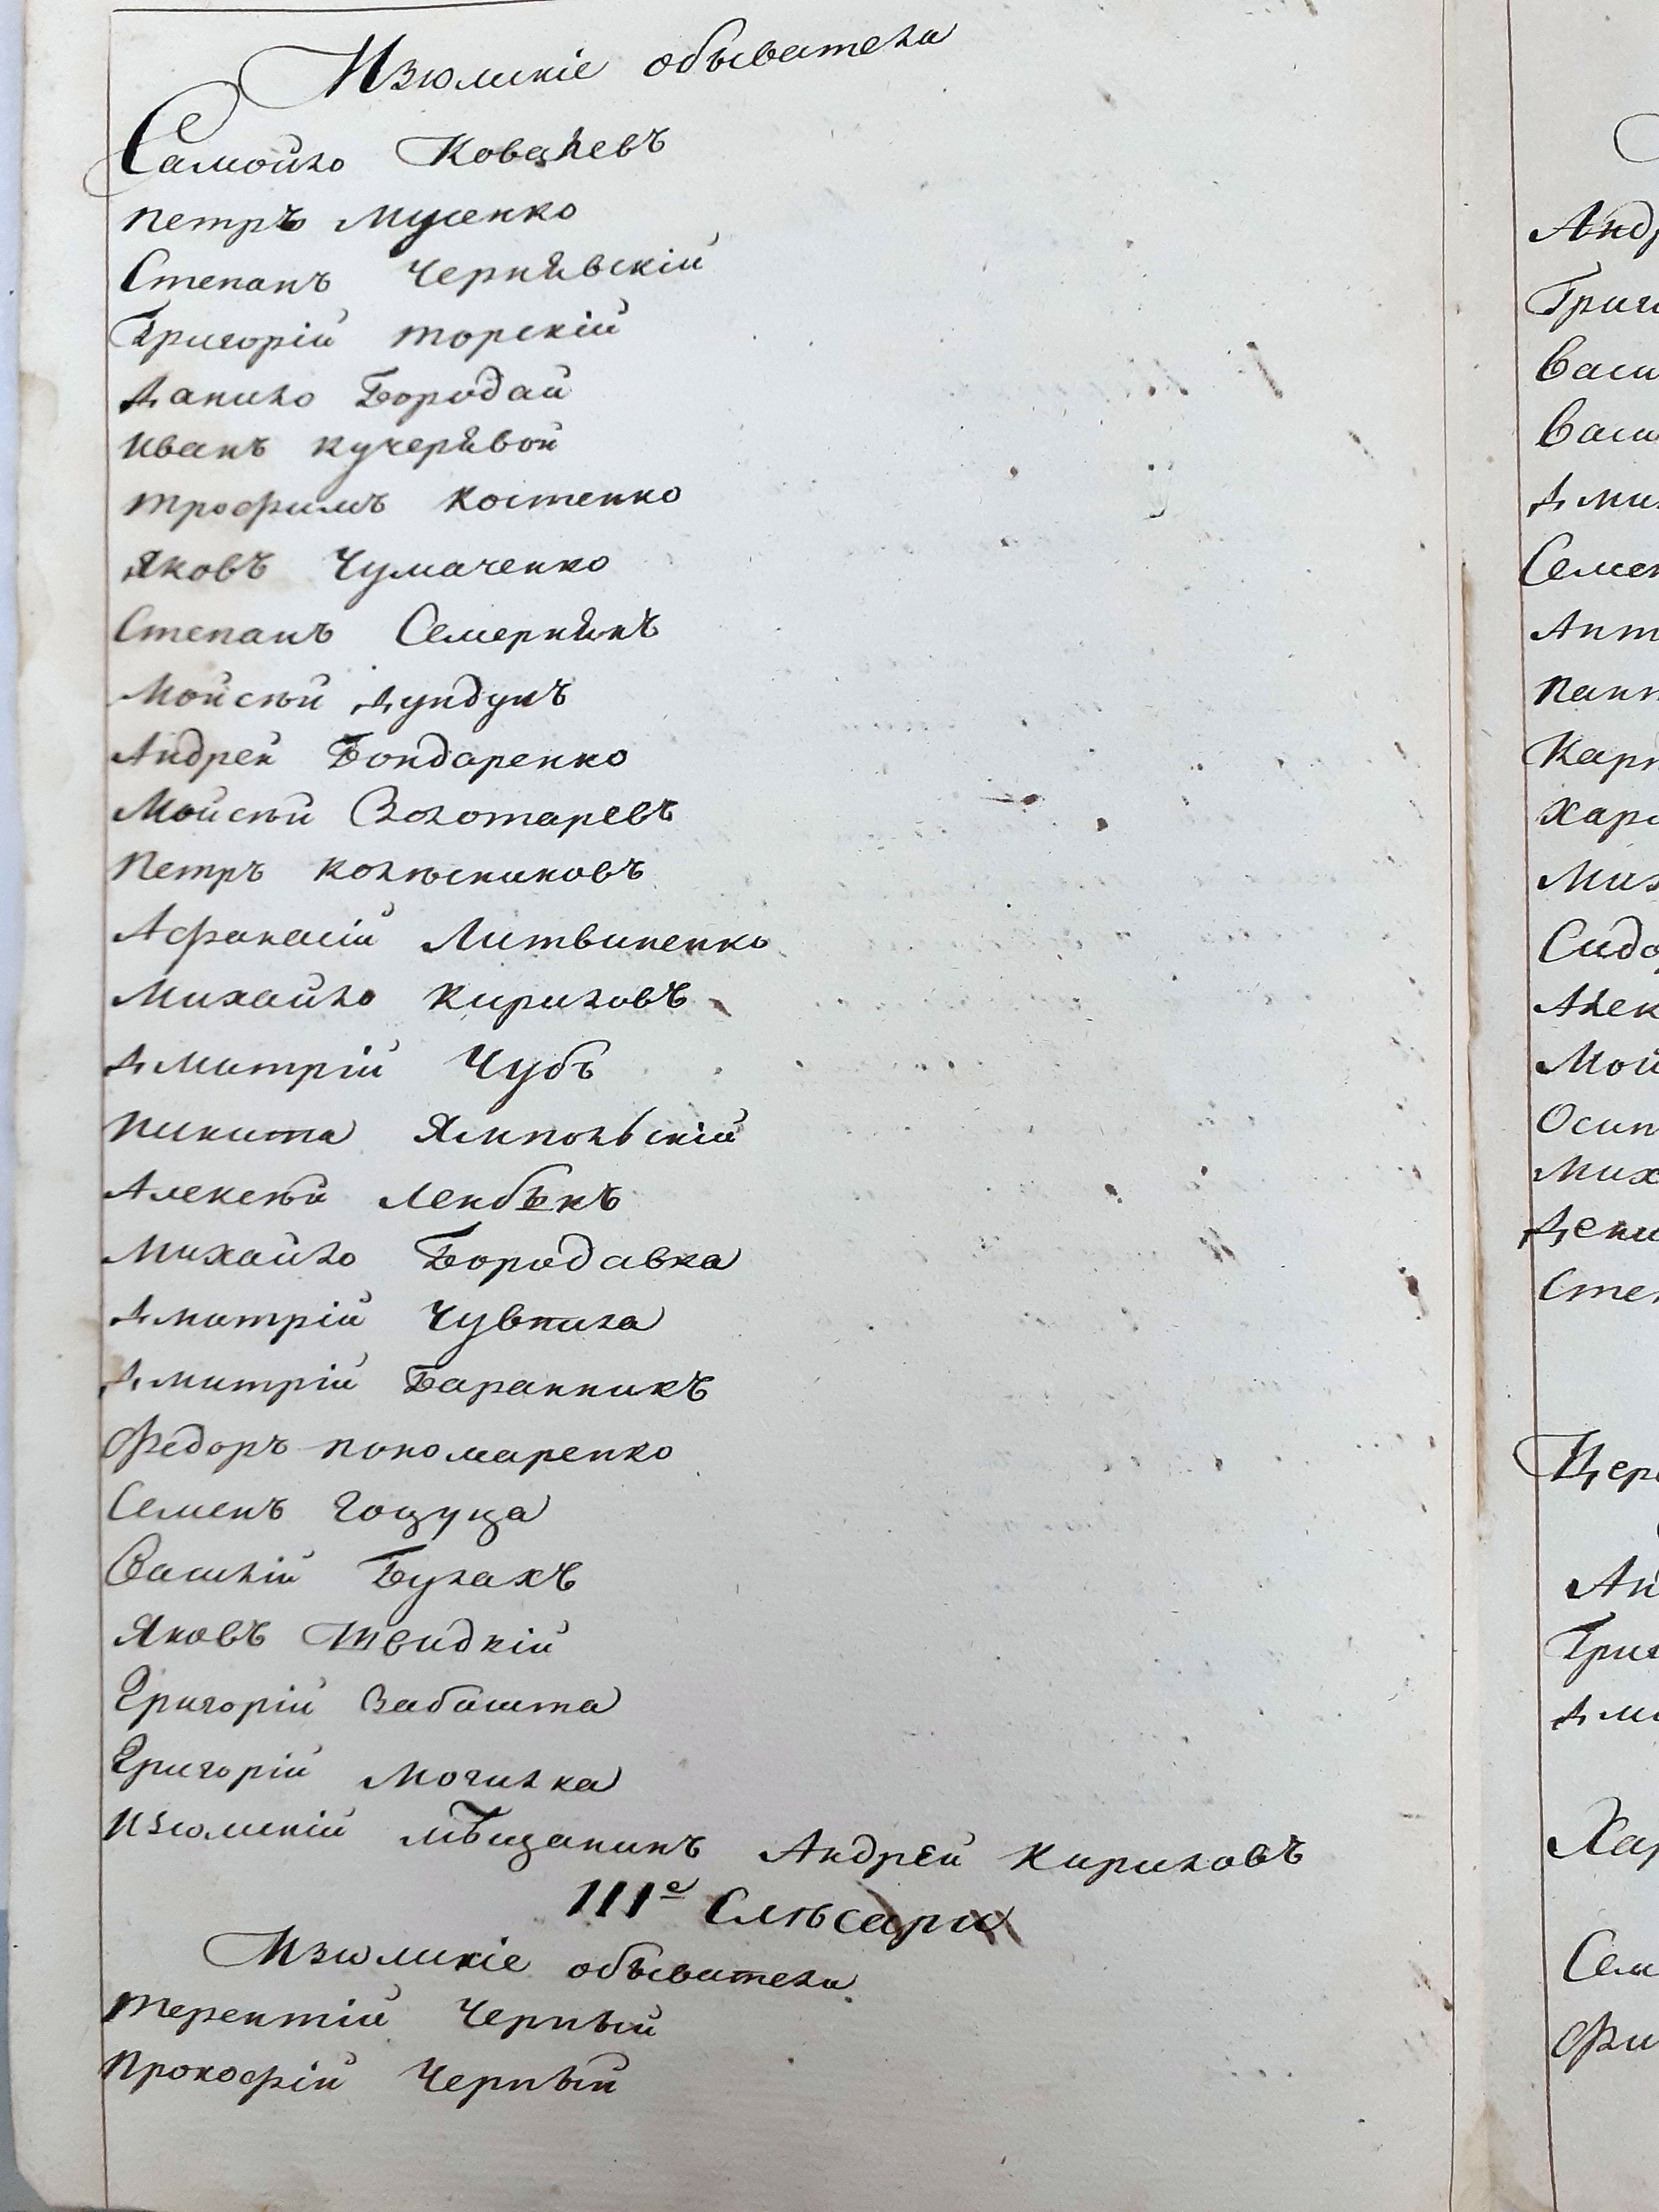 Изюмскіе обыватели
Самойло Ковалевъ
Петръ Мусенко
Степанъ Чернявскій
Григорій Торскій
Данило Бородай
Иванъ Кучерявой
Трофимъ Костенко
Яковъ Чумаченко
Степанъ Семернянъ
Мойсѣй Дундукъ
Андрей Бондаренко
Мойсѣй Золотаревъ
Петръ Колѣсниковъ
Афанасій Литвиненко
Михайло Кириловъ
Дмитрій Чубъ
Никита Ямпольскій
Алексѣй Ленбекъ
Михайло Бородавка
Дмитрій Чувпила
Дмитрій Баранникъ
Федоръ Пономаренко
Семенъ Гоцуца
Василій Булахъ
Яковъ Швидкій
Григорій Забашта
Григорій Могилка
Изюмскій мѣщанинъ Андрей Кириловъ
III<sup>е</sup> Слѣсари
Изюмскіе обыватели
Терентій Черный
Прокофій Черный
Анд
Григ
Васи
Васи
Дми
Семен
Ант
Пант
Карп
Хар
Мих
Сидо
Алек
Мой
Осип
Мих
Дени
Степ
Цер
Ан
Григ
Дми
Хар
Сем
Фи